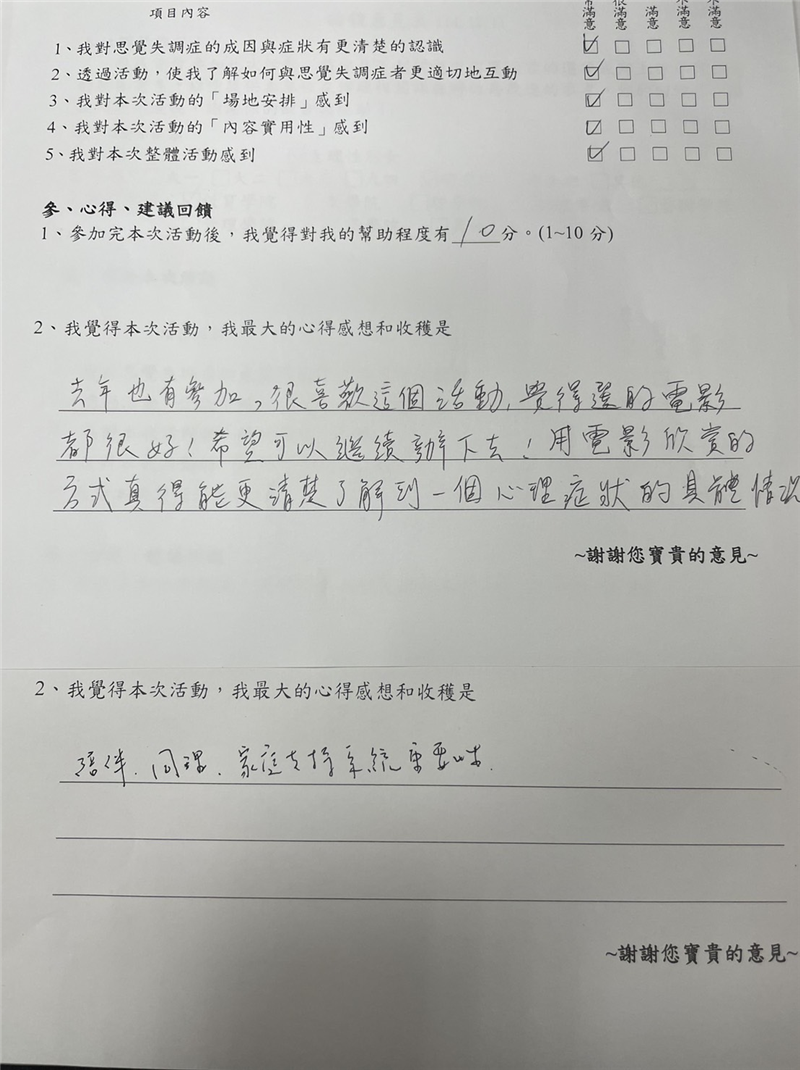 項目內容
常滿意 很滿意 滿意 不滿意 不滿意
1、我對思覺失調症的成因與症狀有更清楚的認識
2、透過活動，使我了解如何與思覺失調症者更適切地互動
3、我對本次活動的「場地安排」感到
4、我對本次活動的「內容實用性」感到
5、我對本次整體活動感到
參、心得、建議回饋
1、參加完本次活動後，我覺得對我的幫助程度有10分。(1~10 分)
2、我覺得本次活動，我最大的心得感想和收穫是
去年也有參加，很喜歡這個活動，覺得選的電影
都很好！希望可以繼續辦下去！用電影欣賞的
方式真得能更清楚了解到一個心理症狀的具體情況
~謝謝您寶貴的意見~
2、我覺得本次活動，我最大的心得感想和收穫是
陪伴、同理、家庭支持系統重要性.
~謝謝您寶貴的意見~